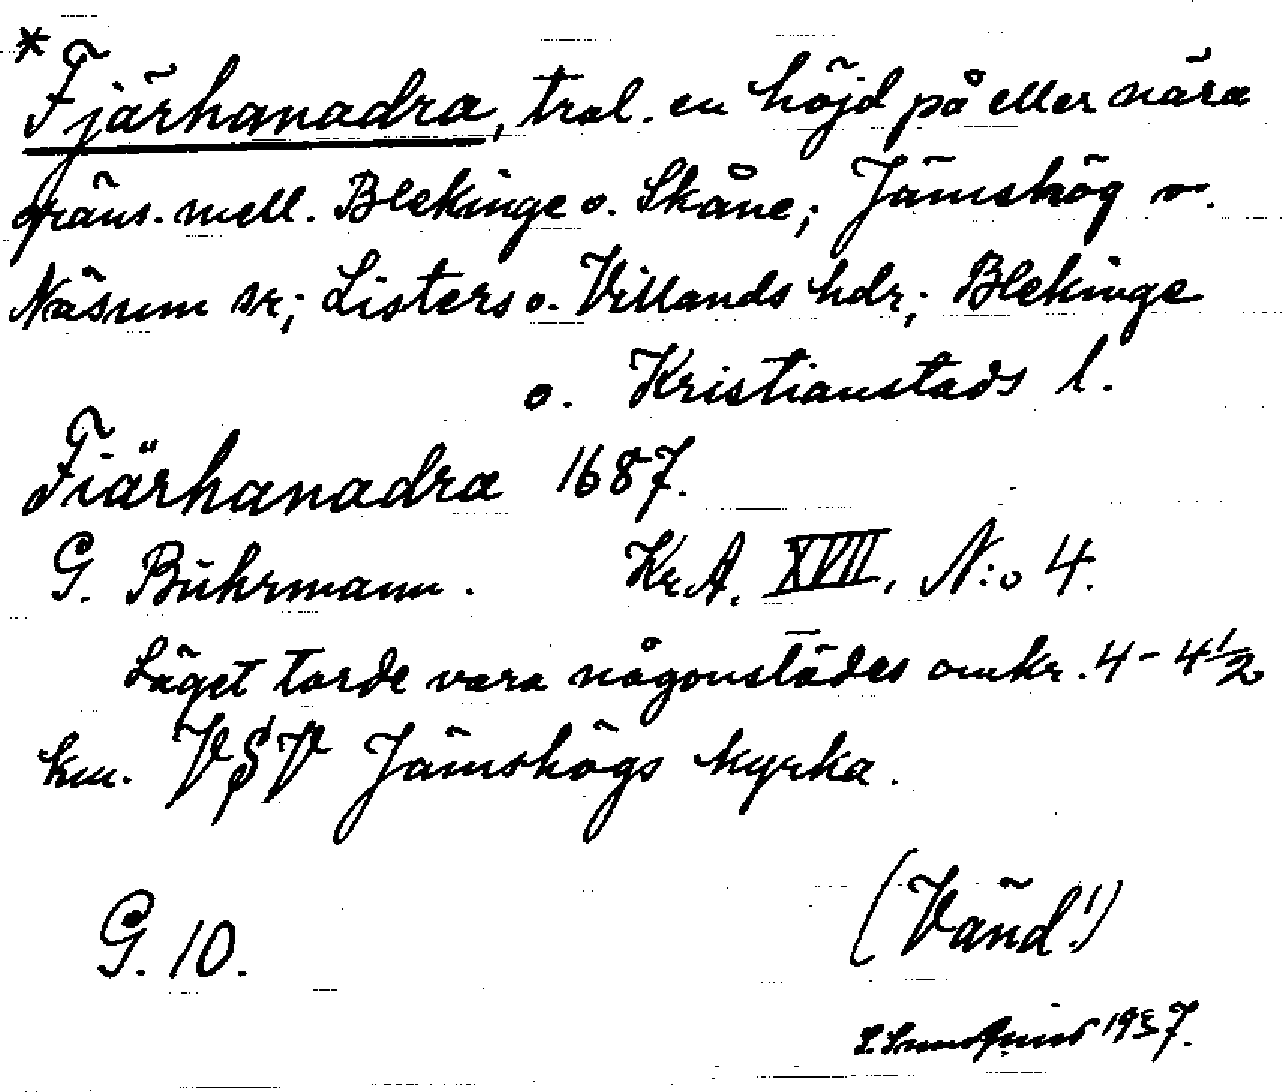 * Fjärhanadra, trol. en höjd på eller nära
gräns. mell. Blekinge o. Skåne; Jämshög o.
Näsum snr; Listers o. Villands hdr; Blekinge
o. Kristianstads l.
Fiärhanadra 1687.
G. Buhrmann. Kr.A. XVII, N:o 4.
Läget torde vara någonstädes omkr. 4-4½
km. VSV Jämshögs kyrka.
(Vänd!)
G. 10.
1937.